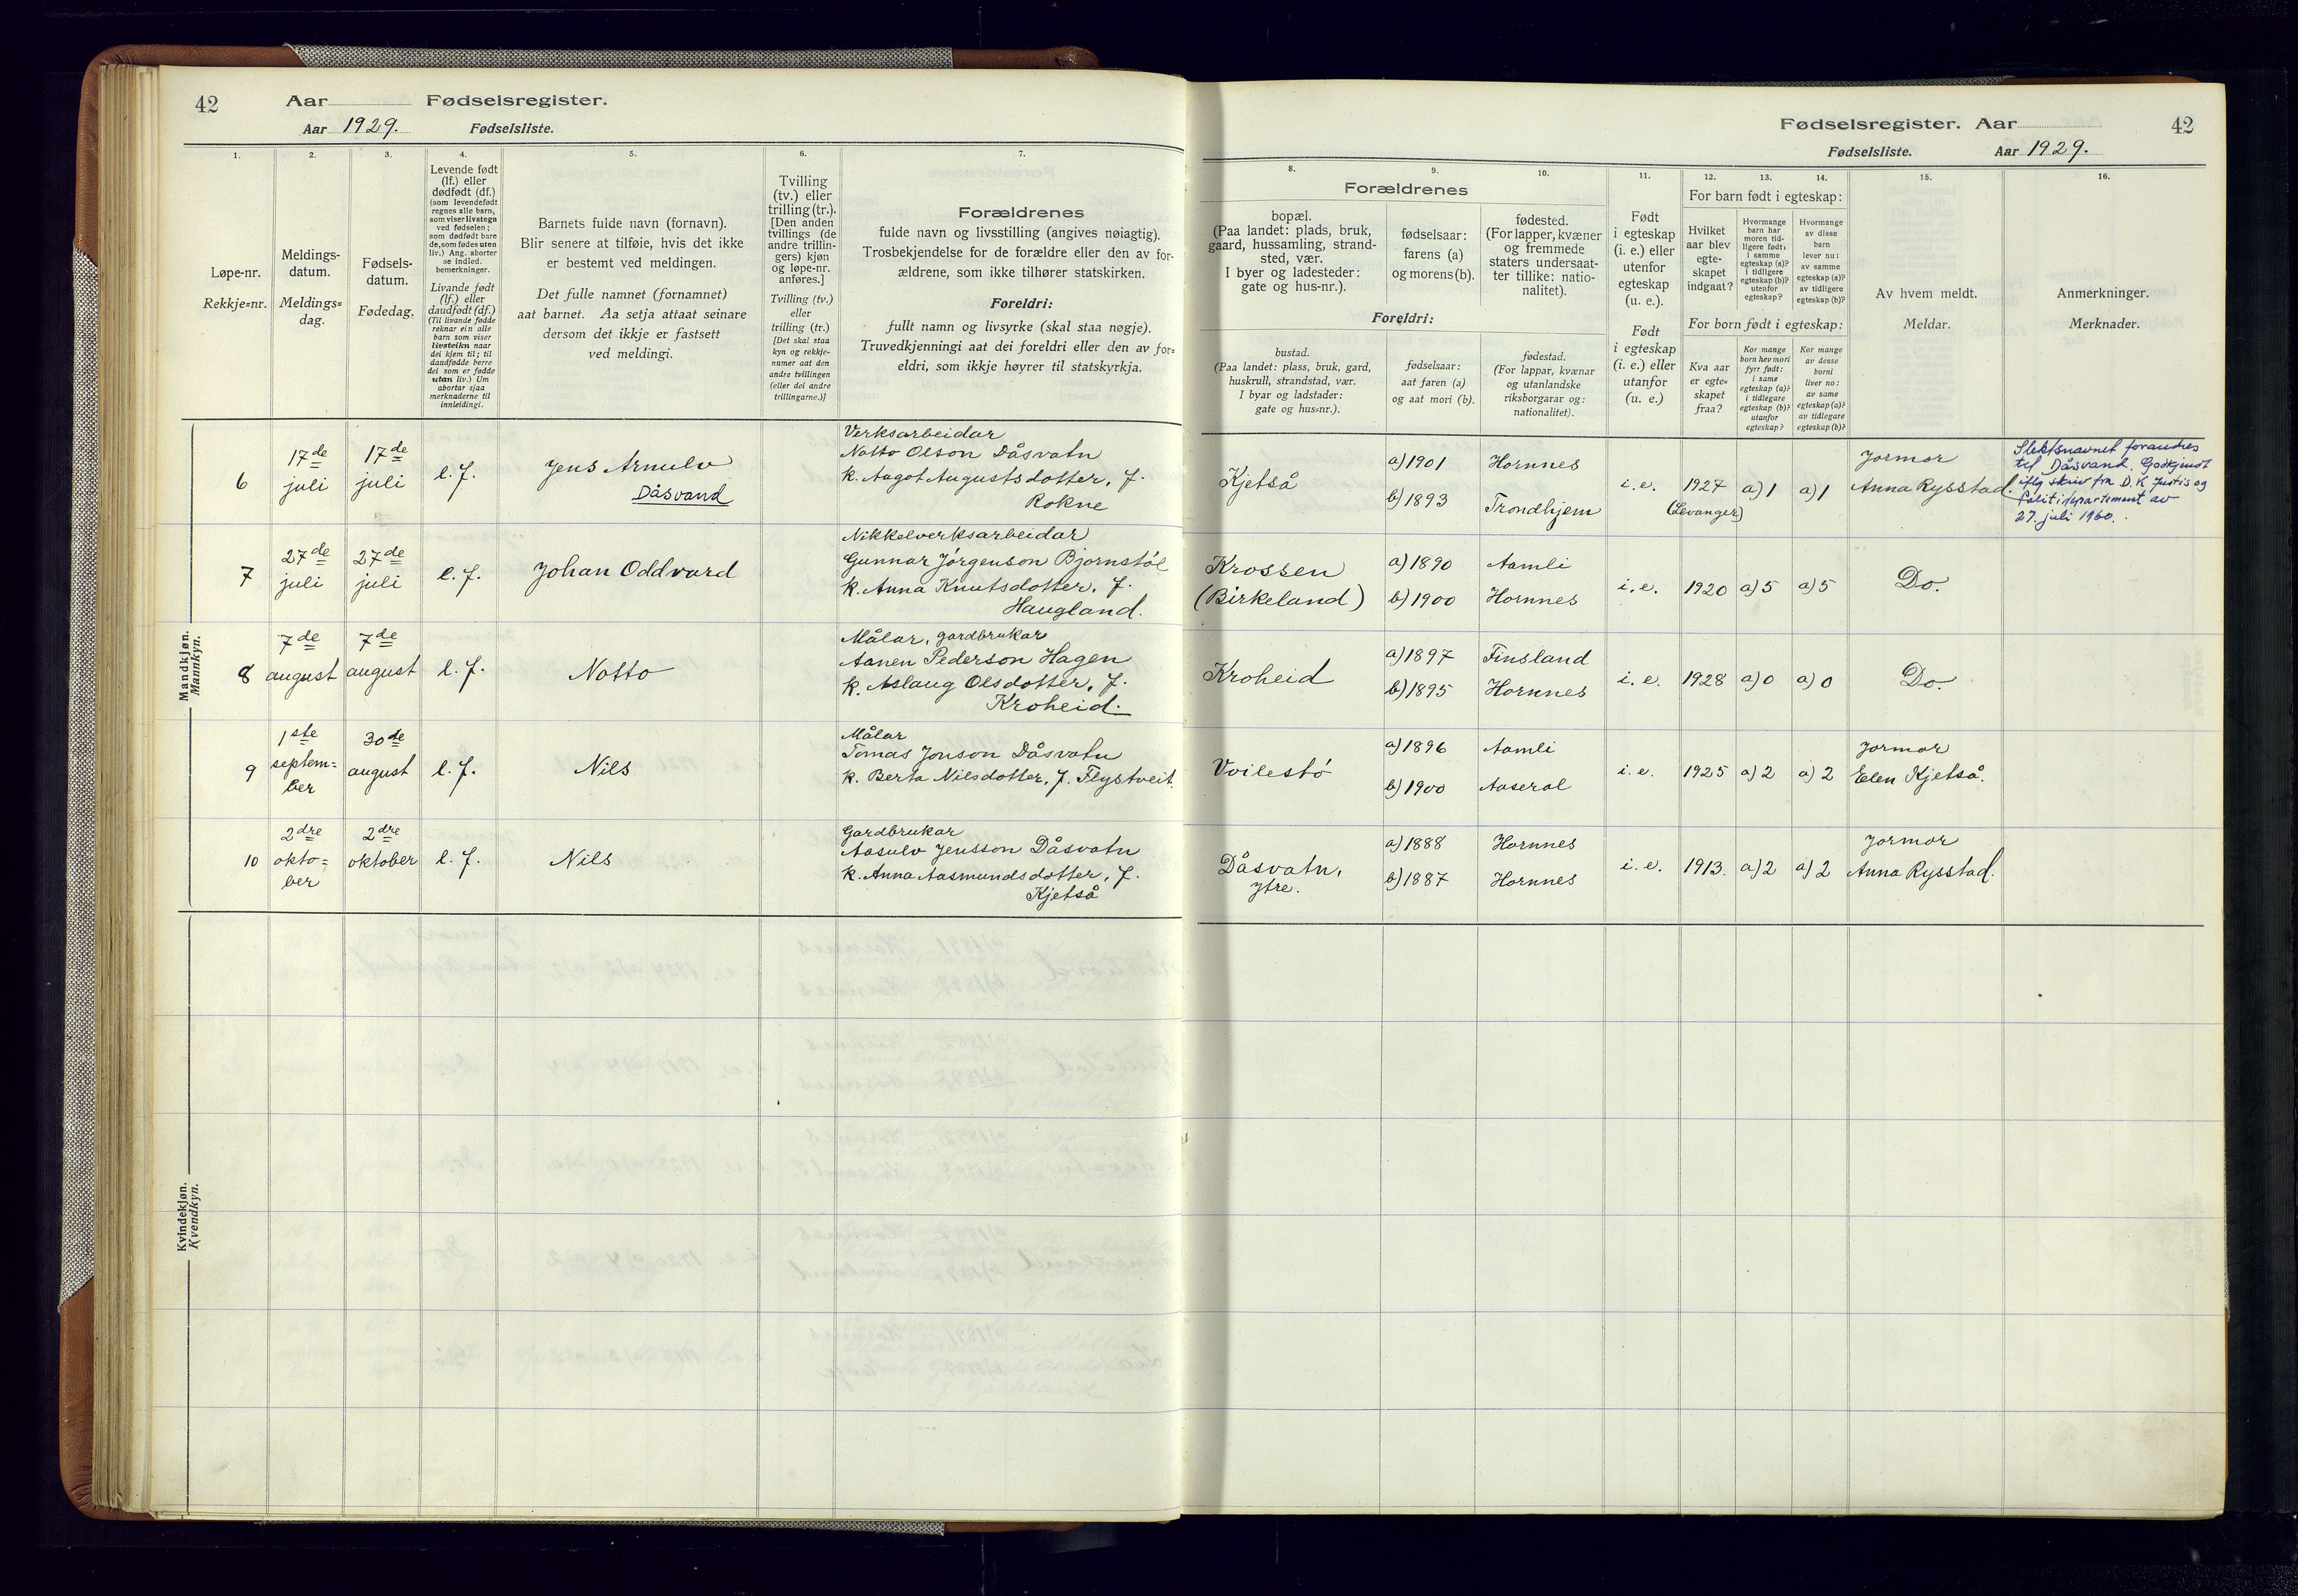 42
Aar
Fødselsregister.
Aar 1929.
Fødselsliste.
1.
2.
3.
4.
5.
6.
7.
Løpe-nr.
Rekkje=nr.
Meldings-
datum.
Meldings=
dag.
Fødsels-
datum.
Fødedag.
Levende født
(lf.) eller
dødfødt (df.)
(som levendefødt
regnes alle barn,
som viser livstegn
ved fødselen;
som dødfødt bare
de, som fødes uten
liv.) Ang. aborter
se indled.
bemerkninger.
Livande født
(lf.) eller
daudfødt (df.)
(Til livande fødde
reknar ein alle
barn som viser
livsteikn naar
dei kjem til; til
daudfødde berre
dei som er fødde
utan liv.) Um
abortar sjaa
merknaderne til
innleidingi.
Barnets fulde navn (fornavn).
Blir senere at tilføie, hvis det ikke
er bestemt ved meldingen.
Det fulle namnet (fornamnet)
aat barnet. Aa setja attaat seinare
dersom det ikkje er fastsett
ved meldingi.
Tvilling
(tv.) eller
trilling (tr.).
[Den anden
tvillings (de
andre trillin-
gers) kjøn
og løpe-nr.
anføres.]
Tvilling (tv.)
eller
trilling (tr.)
[Det skal staa
kyn og rekkje-
numer aat den
andre tvillingen
(eller dei andre
trillingarne.)]
Forældrenes
fulde navn og livsstilling (angives nøiagtig).
Trosbekjendelse for de forældre eller den av for-
ældrene, som ikke tilhører statskirken.
Foreldri:
fullt namn og livsyrke (skal staa nøgje).
Truvedkjenningi aat dei foreldri eller den av for=
eldri, som ikkje høyrer til statskyrkja.
Mandkjøn.
Mannkyn.
6
17de
juli
17de
juli
l.f.
Jens Arnulv
Dåsvand
Verksarbeidar
Notto Olson Dåsvatn
k. Aagot Augustsdotter, f.
Rokne
7
27de
juli
27de
juli
l.f.
Johan Oddvard
Nikkelverksarbeidar
Gunnar Jörgenson Bjornstöl
k. Anna Knutsdotter, f.
Haugland.
8
7de
august
7de
august
l.f.
Notto
Målar, gardbrukar
Aanen Pederson Hagen
k. Aslaug Olsdotter, f.
Kroheid.
9
1ste
septem=
ber
30de
august
l.f.
Nils
Målar
Tomas Jonson Dåsvatn
k. Berta Nilsdotter, f. Flystveit.
10
2dre
okto=
ber
2dre
oktober
l.f.
Nils
Gardbrukar
Aasulv Jensson Dåsvatn
k. Anna Aasmundsdotter, f.
Kjetså
Kvindekjøn.
Kvendkyn.
Fødselsregister. Aar
42
Fødselsliste.
Aar 1929.
8.
9.
10.
11.
12.
13.
14.
15.
16.
Forældrenes
bopæl.
(Paa landet: plads, bruk,
gaard, hussamling, strand-
sted, vær.
I byer og ladesteder:
gate og hus-nr.).
fødselsaar:
farens (a)
og morens (b).
fødested.
(For lapper, kvæner
og fremmede
staters undersaat-
ter tillike: natio-
nalitet).
Foreldri:
bustad.
(Paa landet: plass, bruk, gard,
huskrull, strandstad, vær.
I byar og ladstader:
gate og hus=nr.).
fødselsaar:
aat faren (a)
og aat mori (b).
fødestad.
(For lappar, kvænar
og utanlandske
riksborgarar og:
nationalitet).
Født
i egteskap
(i. e.) eller
utenfor
egteskap
(u. e.).
Født
i egteskap
(i. e.) eller
utanfor
(u. e.)
For barn født i egteskap:
Hvilket
aar blev
egte-
skapet
indgaat?
Hvormange
barn har
moren tid-
ligere født:
i samme
egteskap (a)?
i tidligere
egteskap (b)?
utenfor
egteskap?
Hvormange
av disse
barn
lever nu:
av samme
egteskap (a)?
av tidligere
egteskap (b)?
For born født i egteskap:
Kva aar
er egte=
skapet
fraa?
Kor mange
born hev mori
fyrr født:
i same
egteskap (a)?
i tidlegare
egteskap (b)?
utanfor
egteskap?
Kor mange
av desse
borni
liver no:
av same
egteskap (a)?
av tidlegare
egteskap (b)?
Av hvem meldt.
Meldar.
Anmerkninger.
Merknader.
Kjetså
a) 1901
b) 1893
Hornnes
Trondhjem
i.e.
1927
(Levanger)
a) 1
a) 1
Jormor
Anna Rysstad.
Slektsnavnet forandres
til Dåsvand. Godkjendt
iflg skriv fra D. K. Justis og
Politidepartement av
27. juli 1960.
Krossen
(Birkeland)
a) 1890
b) 1900
Aamli
Hornnes
i.e.
1920
a) 5
a) 5
Do.
Kroheid
a) 1897
b) 1895
Finsland
Hornnes
i.e.
1928
a) 0
a) 0
Do.
Voilestö
a) 1896
b) 1900
Aamli
Aaseral
i.e.
1925
a) 2
a) 2
Jormor
Elen Kjetså.
Dåsvatn,
Ytre.
a) 1888
b) 1887
Hornnes
Hornnes
i.e.
1913.
a) 2
a) 2
Jormor
Anna Rysstad.